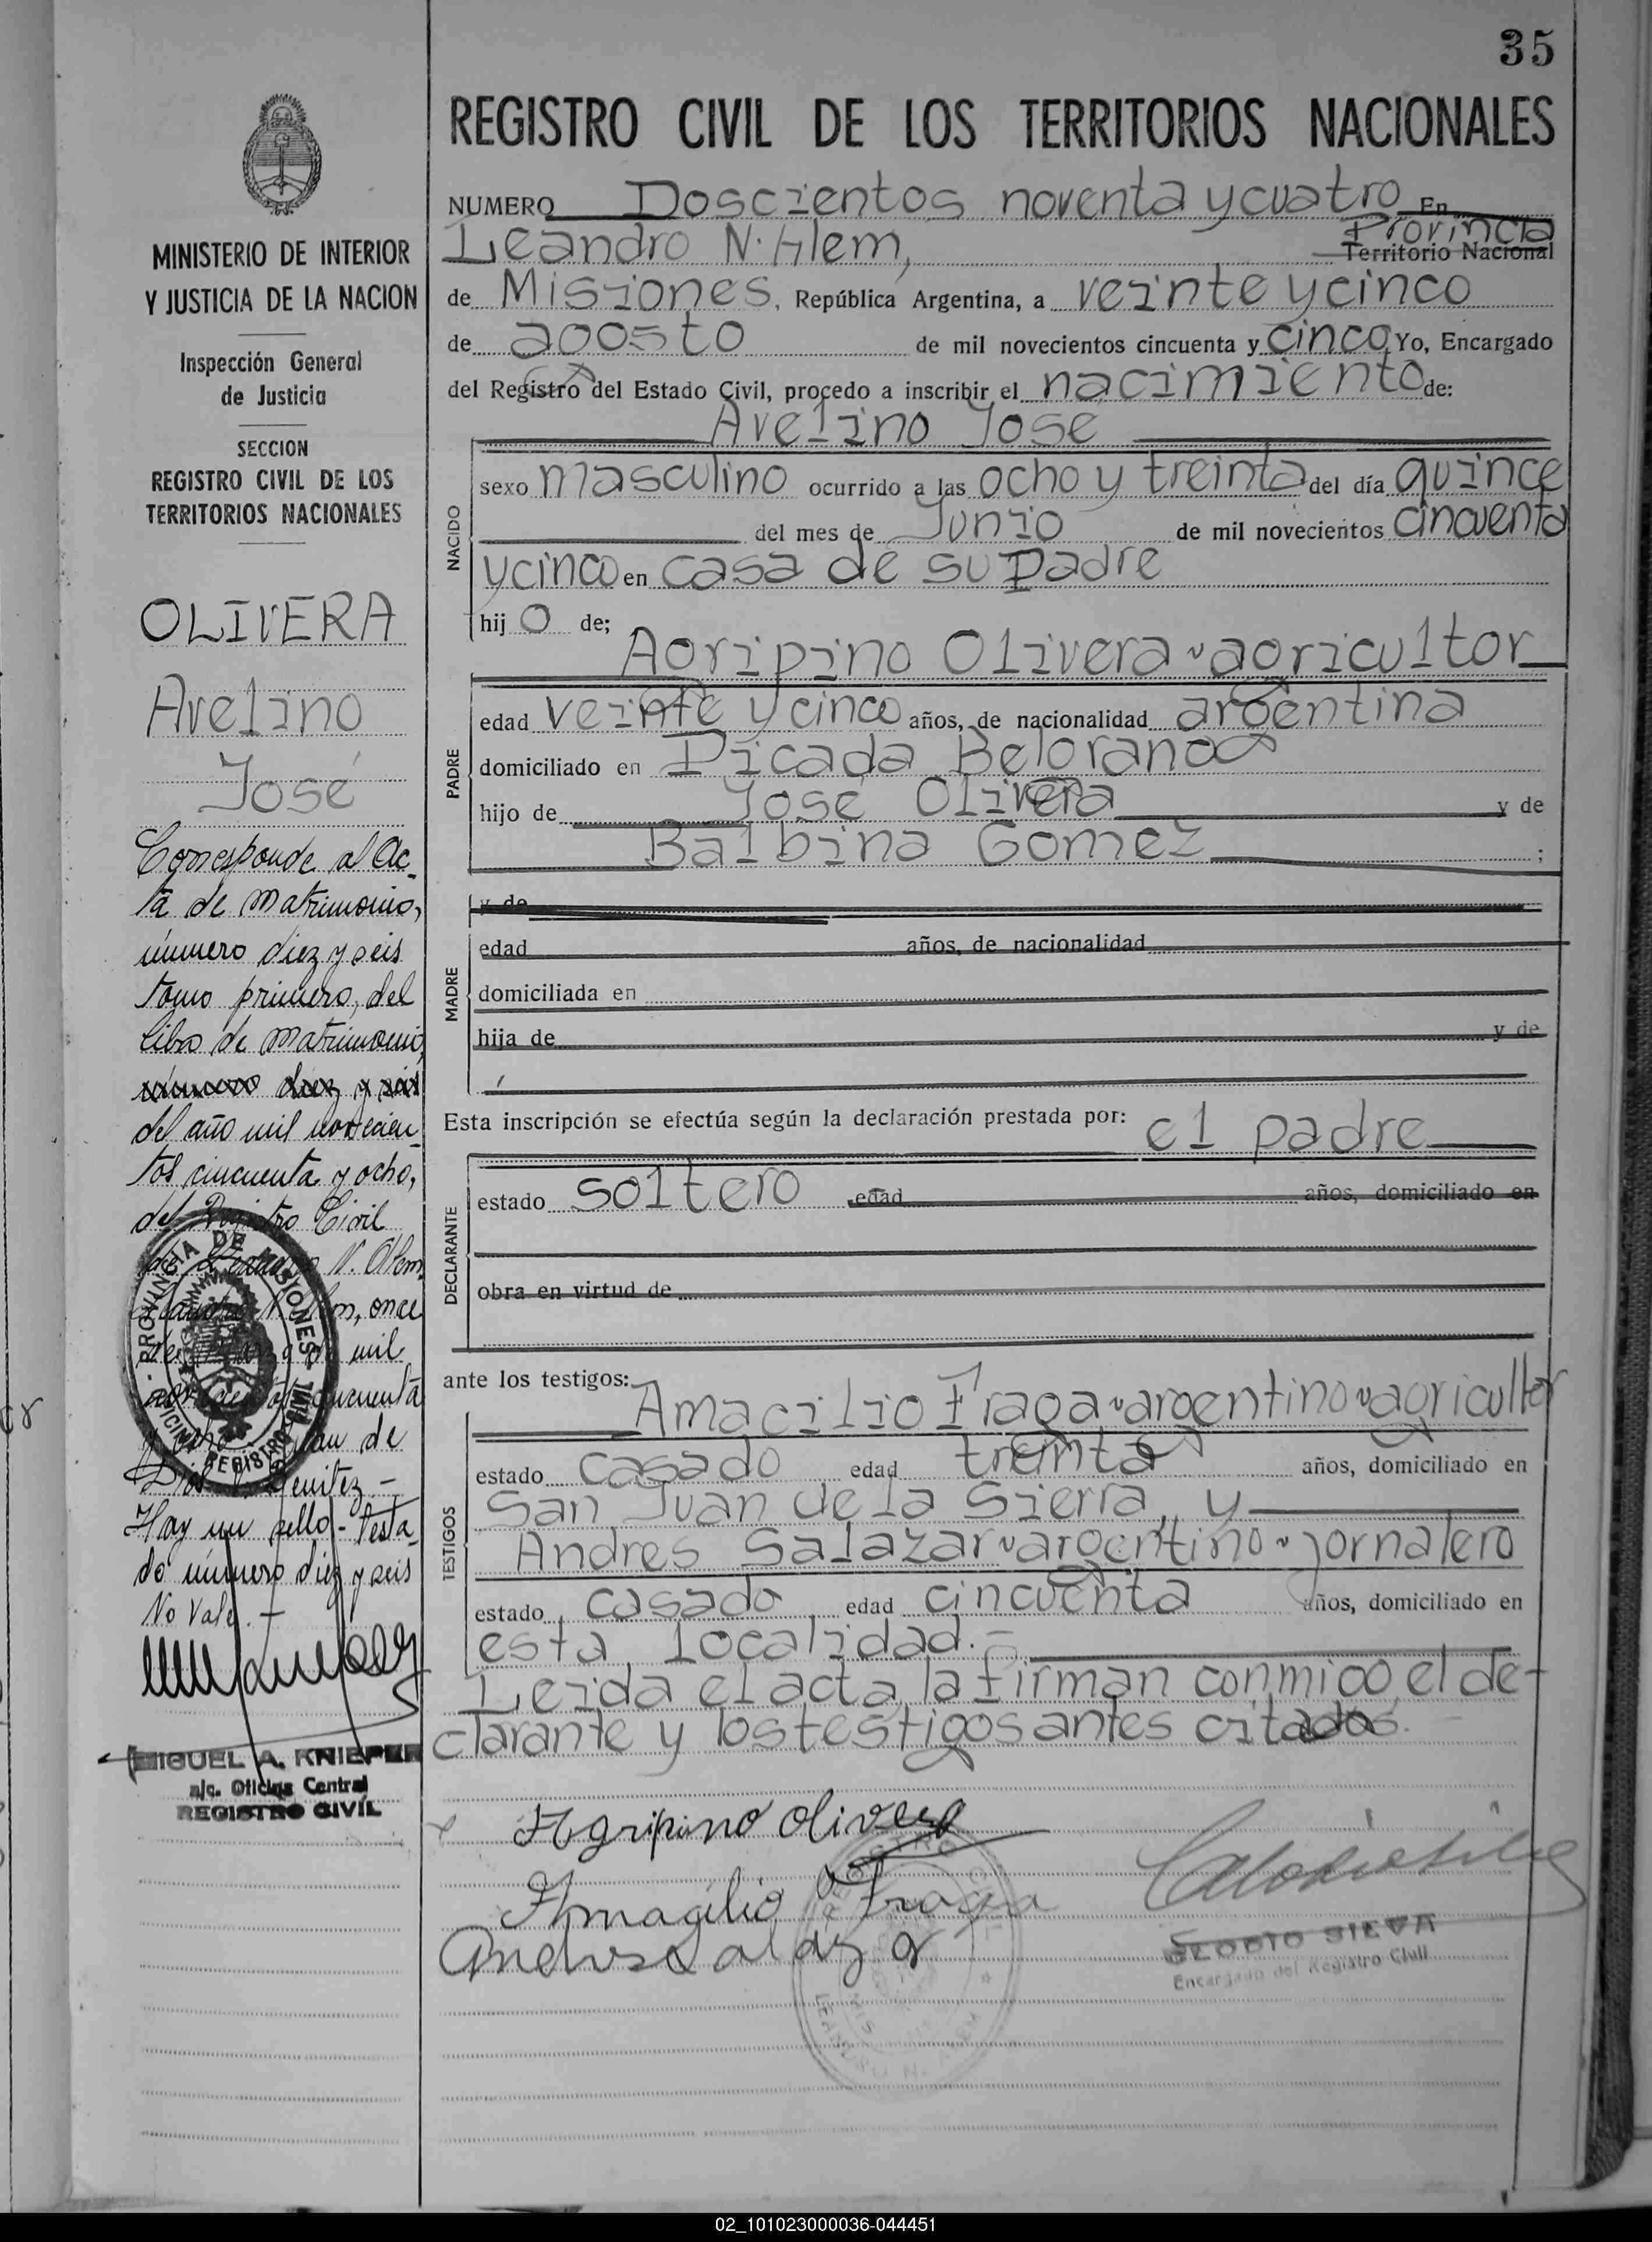 35
REGISTRO CIVIL DE LOS TERRITORIOS NACIONALES
MINISTERIO DE INTERIOR
Y JUSTICIA DE LA NACION
Inspección General
de Justicia
SECCION
REGISTRO CIVIL DE LOS
TERRITORIOS NACIONALES
OLIVERA
Avelino
José
Corresponde al Ac-
ta de Matrimonio,
número diez y seis
tomo primero, del
libro de Matrimonio
número diez y seis
del año mil novecien-
tos cincuenta y ocho,
del Registro Civil
de Leandro N. Alem.
Leandro N. Alem, once
de mil
novecientos cincuenta
y ocho. Juan de
Dios Benitez.-
Hay un sello - Testa-
do número diez y seis
No Vale. -
PROVINCIA DE MISIONES
OFICINA REGISTRO CIVIL
MIGUEL A. KNIEPER
a/c. Oficina Central
REGISTRO CIVIL
NUMERO Doscientos noventa y cuatro En
Leandro N. Alem, Provincia
Territorio Nacional
de Misiones, República Argentina, a veinte y cinco
de agosto de mil novecientos cincuenta y cinco, Yo, Encargado
del Registro del Estado Civil, procedo a inscribir el nacimiento de:
Avelino José
NACIDO
sexo masculino ocurrido a las ocho y treinta del día quince
del mes de Junio de mil novecientos cincuenta
y cinco en casa de su padre
hijo de;
Agripino Olivera - agricultor
PADRE
edad veinte y cinco años, de nacionalidad argentina
domiciliado en Picada Belgrano
hijo de José Olivera y de
Balbina Gomez ;
MADRE
y de
edad años, de nacionalidad
domiciliada en
hija de y de
Esta inscripción se efectúa según la declaración prestada por: el padre
DECLARANTE
estado soltero edad años, domiciliado en
obra en virtud de
ante los testigos: Amacilio Fraga - argentino - agricultor
TESTIGOS
estado casado edad treinta años, domiciliado en
San Juan de la Sierra, y
Andres Salazar - argentino - jornalero
estado casado edad cincuenta años, domiciliado en
esta localidad.-
Leida el acta, la firman conmigo, el de-
clarante y los testigos antes citados.-
Agripino Olivera
Amagilio Fraga
Andres Salazar
CLODIO SILVA
Encargado del Registro Civil
02_101023000036-044451